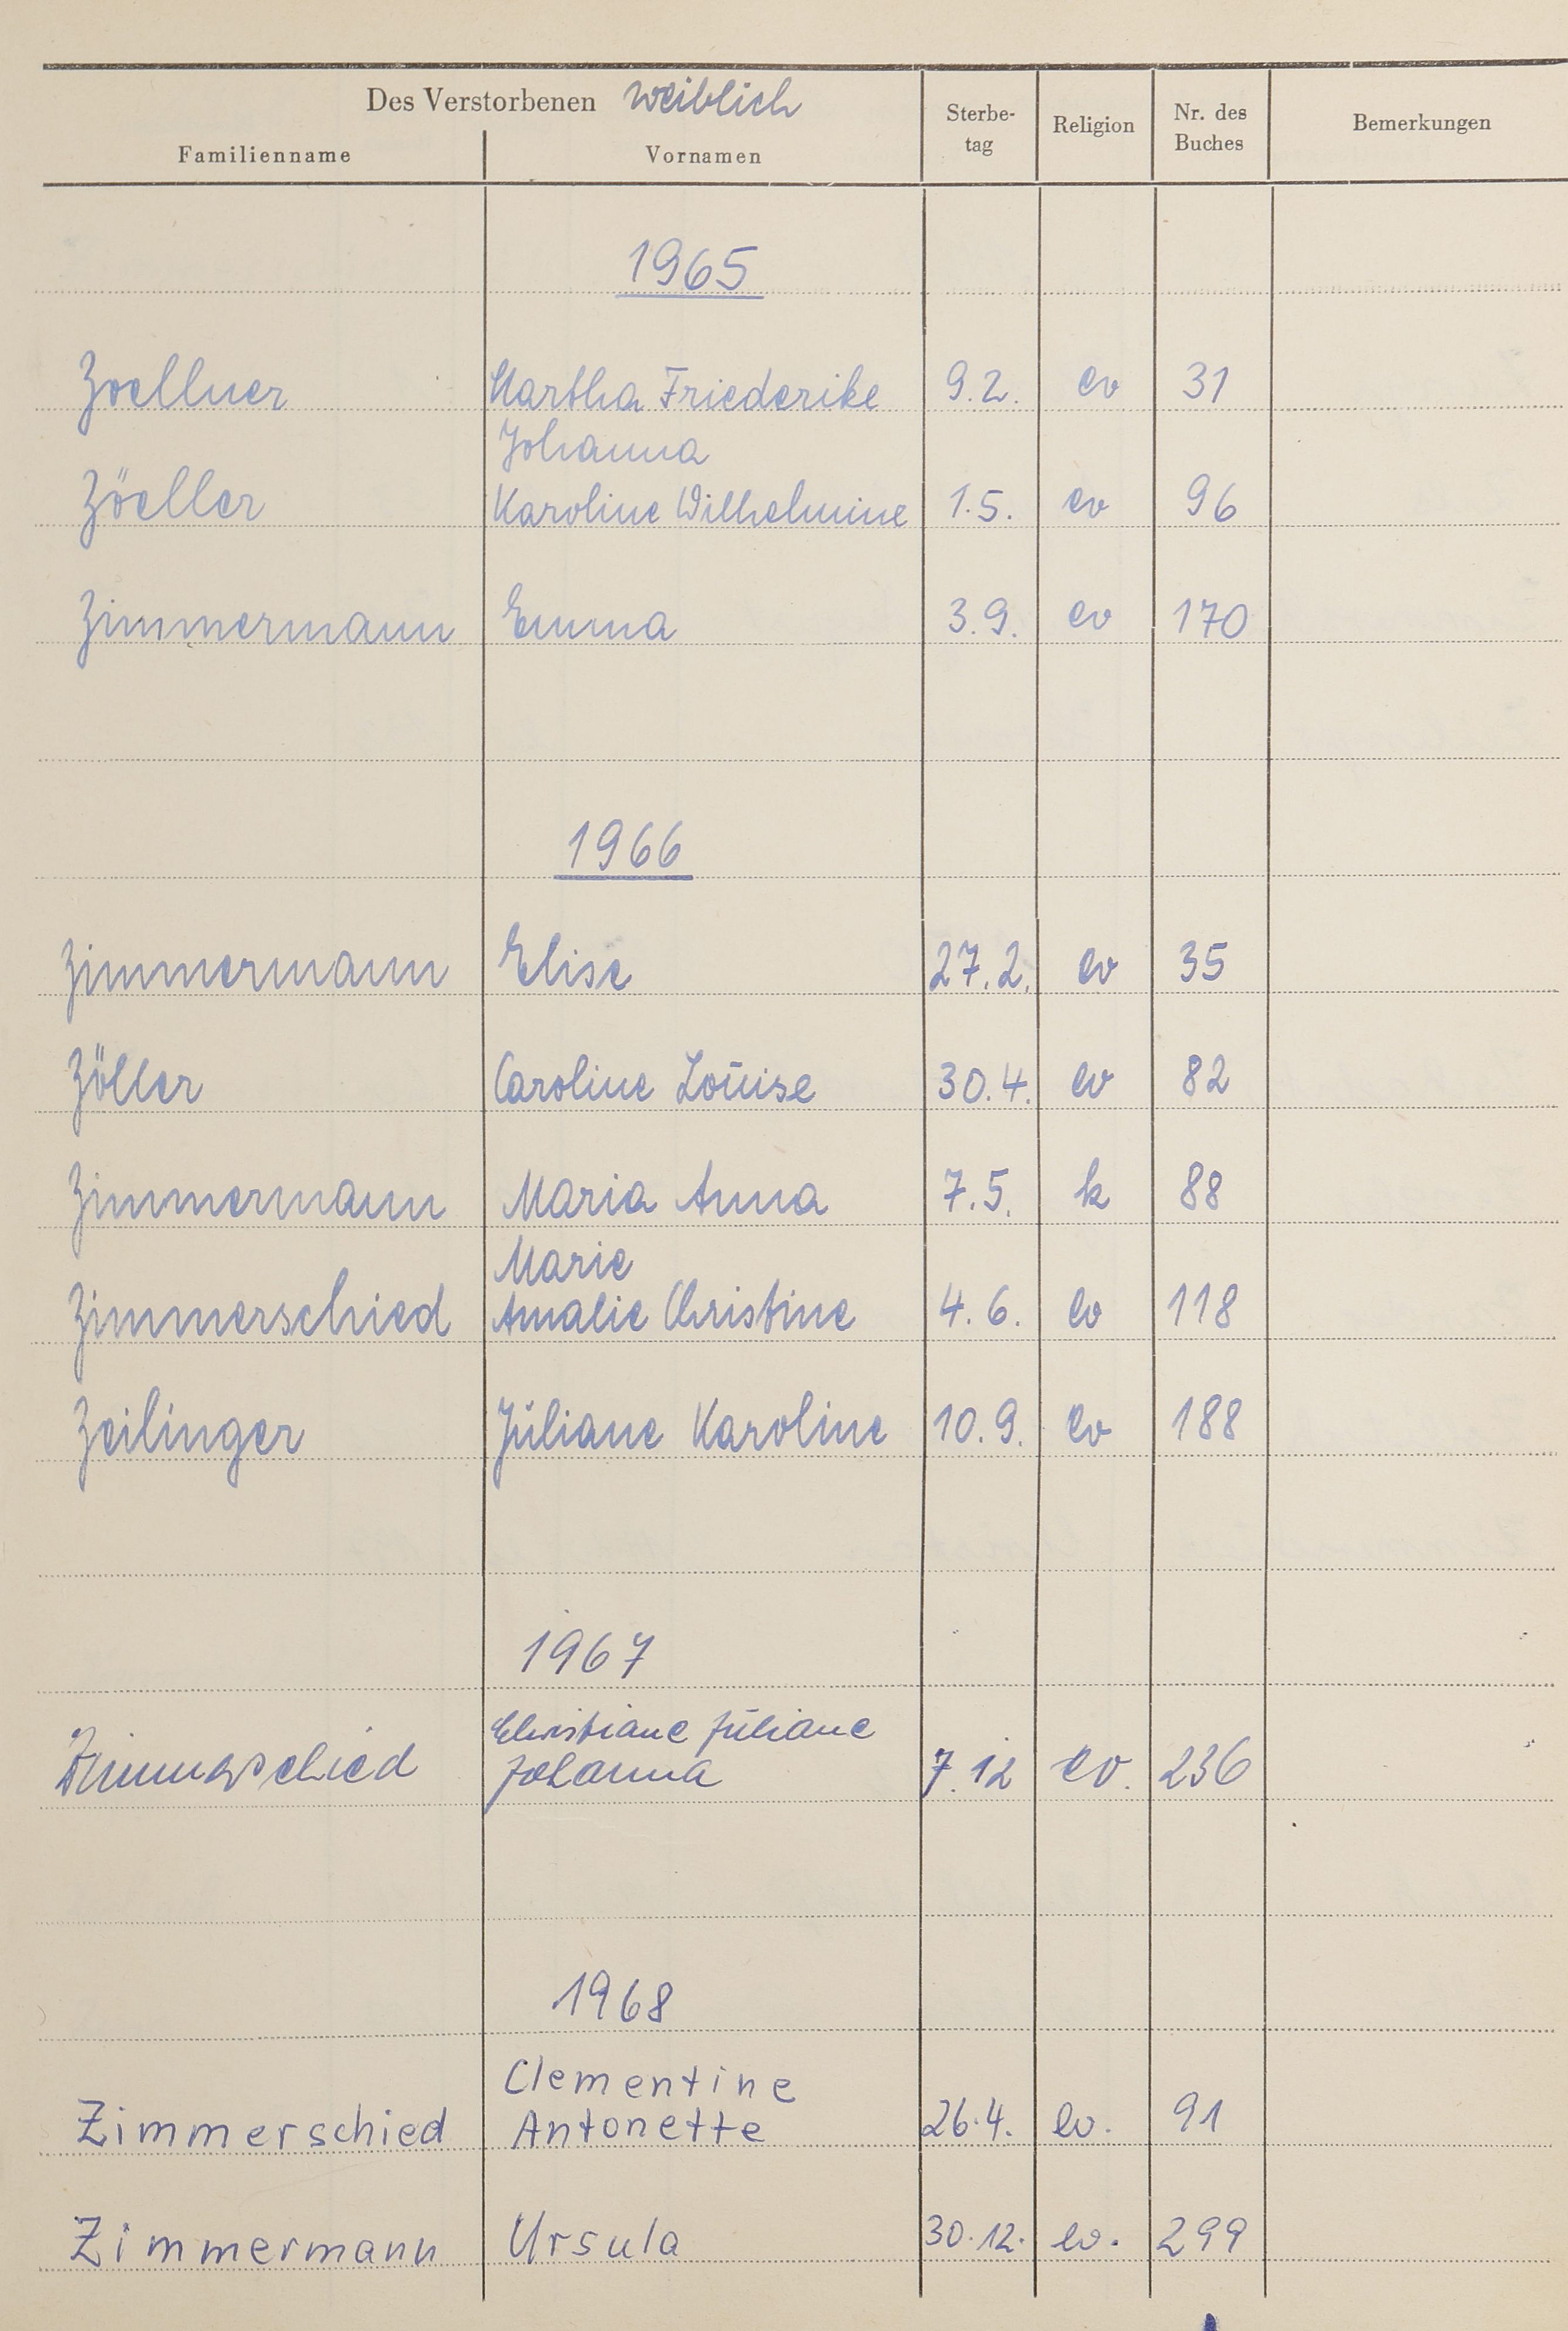 Des Verstorbenen weiblich
Familienname Vornamen Sterbe-tag Religion Nr. des Buches Bemerkungen
1965
Zoellner Martha Friederike 9.2. ev 31
Johanna
Zöeller Karoline Wilhelmine 1.5. ev 96
Zimmermann Emma 3.9. ev 170
1966
Zimmermann Elise 27.2. ev 35
Zöller Caroline Louise 30.4. ev 82
Zimmermann Maria Anna 7.5. k 88
Marie
Zimmerschied Amalie Christine 4.6. ev 118
Zeilinger Juliane Karoline 10.9. ev 188
1967
Christiane Juliane
Zimmerschied Johanna 7.12 ev. 236
1968
Clementine
Zimmerschied Antonette 26.4. ev. 91
Zimmermann Ursula 30.12. ev. 299